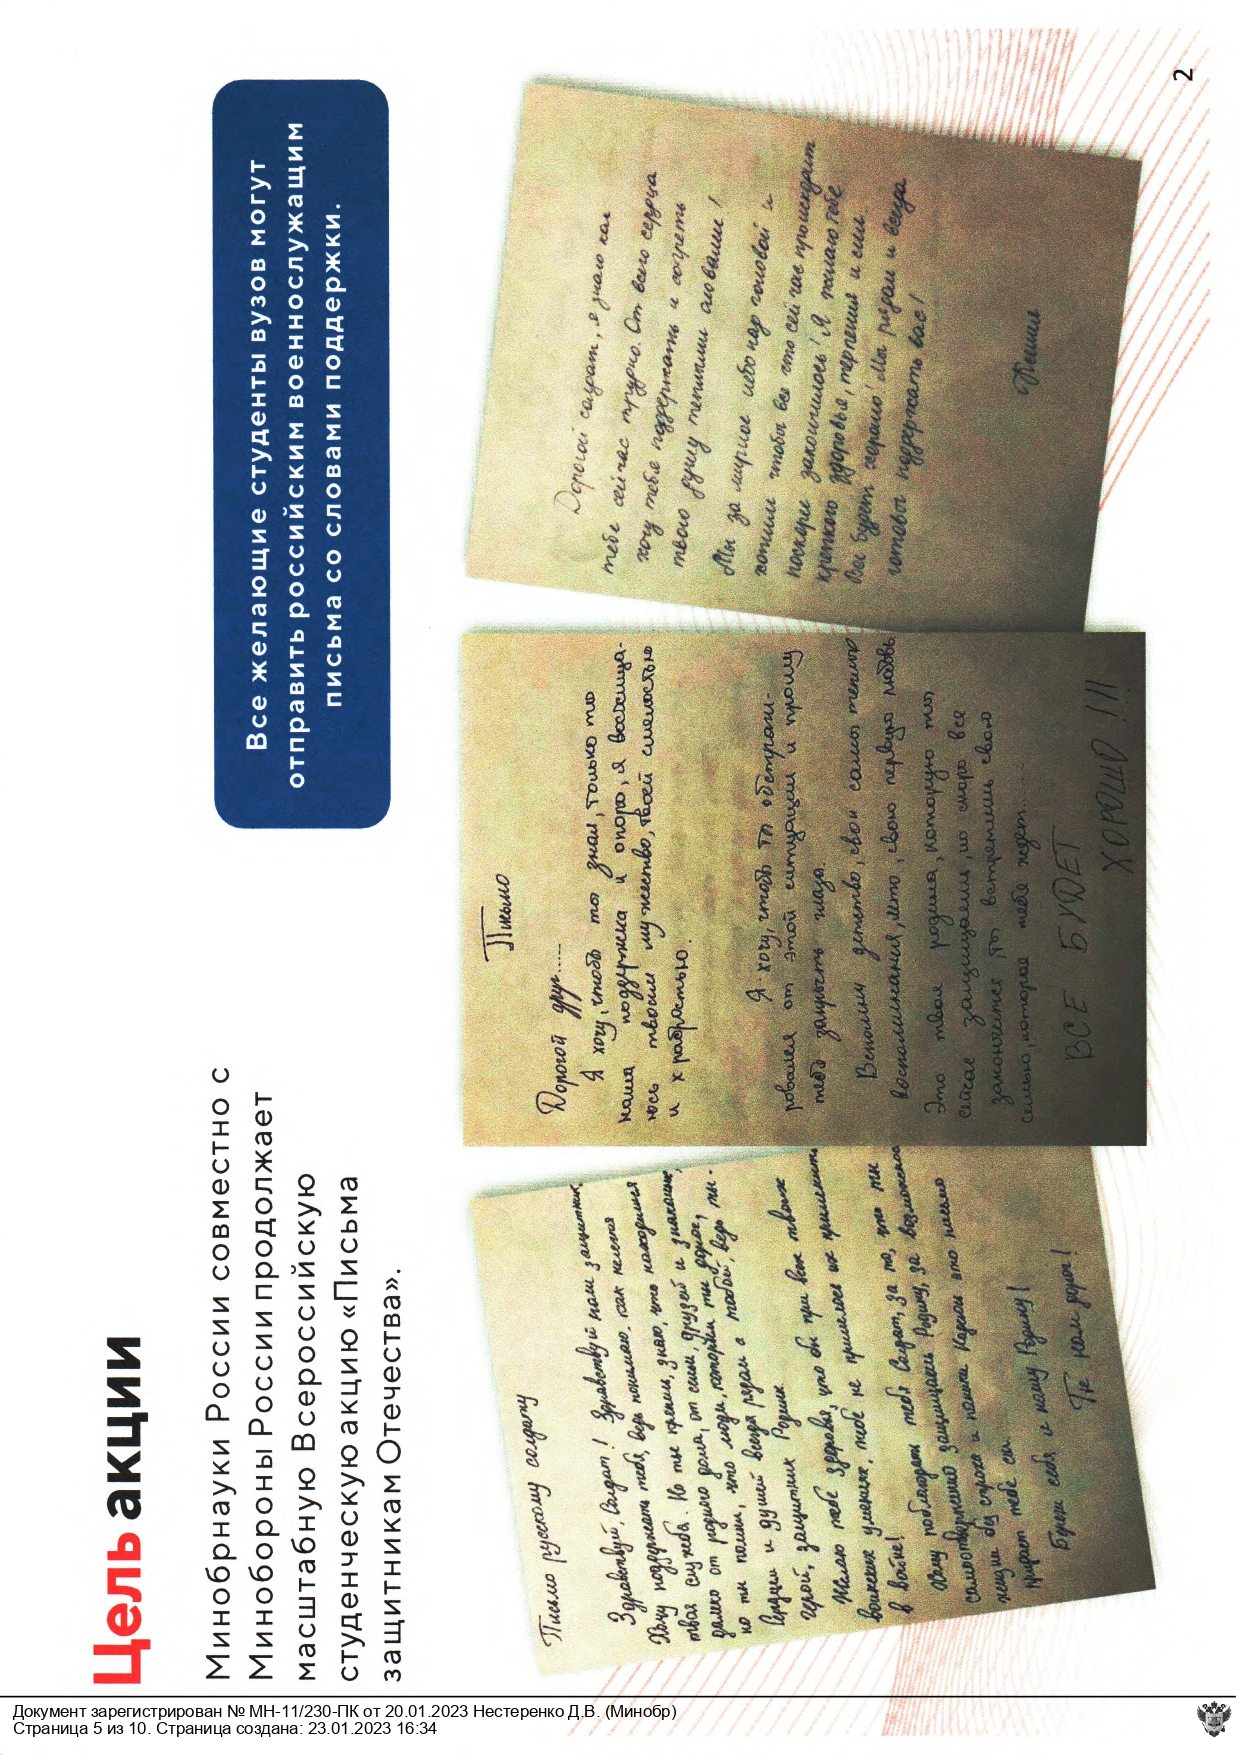 Цель акции
Минобрнауки России совместно с
Минобороны России продолжает
масштабную Всероссийскую
студенческую акцию «Письма
защитникам Отечества».
Все желающие студенты вузов могут
отправить российским военнослужащим
письма со словами поддержки.
Письмо русскому солдату
Здравствуй, Солдат! Здравствуй наш защитник.
Хочу поддержать тебя, ведь понимаю как нелегка
твоя служба. Но ты крепись, знаю, что находишься
далеко от родного дома, от семьи, друзей и знакомых,
но ты помни, что люди, которым ты дорог,
сердцем и душой всегда рядом с тобой, ведь ты-
герой, защитник Родины
Желаю тебе здоровья, что бы при всех твоих
воинских умениях, тебе не пришлось их применить
в войне!
Хочу поблагодарить тебя Солдат, за то, что ты
самоотверженно защищаешь Родину, за
и пошли Карси это письмо
придаст тебе сил.
Береги себя и нашу Родину!
Ты нам дорог!
Письмо
Дорогой друг......
Я хочу, чтобы ты знал, только ты
наша поддержка и опора, я восхища-
юсь твоим мужеством, твоей смелостью
и храбростью.
Я хочу, чтобы ты абстраги-
ровался от этой ситуации и прошу
тебя закрыть глаза.
Вспомни детство, свои самые теплые
воспоминания, лето, свою первую любовь
Это твоя родина, которую ты
сейчас защищаешь, но скоро все
закончится, ты встретишь свою
семью, которая тебя ждет......
ВСЕ БУДЕТ
ХОРОШО!!!
Дорогой солдат, я знаю как
тебе сейчас трудно. От всего сердца
хочу тебя поддержать и согреть
твою душу теплыми словами!
Мы за мирное небо над головой и
хотим чтобы все что сейчас происходит
поскорее закончилось! Я желаю тебе
крепкого здоровья, терпения и сил.
Все будет хорошо! Мы рядом и всегда
готовы поддержать вас!
2
Документ зарегистрирован № МН-11/230-ПК от 20.01.2023 Нестеренко Д.В. (Минобр)
Страница 5 из 10. Страница создана: 23.01.2023 16:34